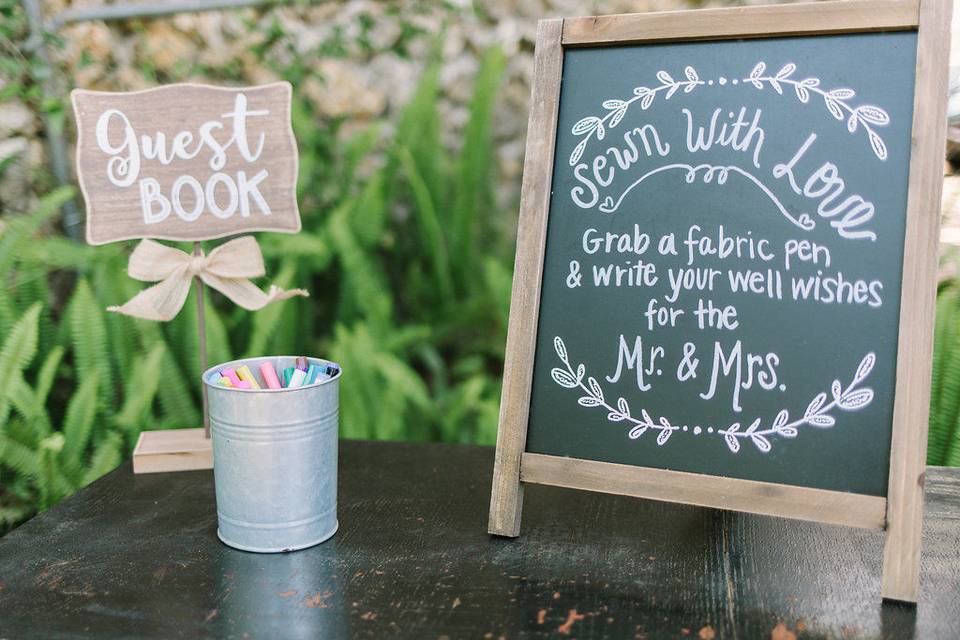 Guest
BOOK
Sewn With Love
Grab a fabric pen
& write your well wishes
for the
Mr. & Mrs.